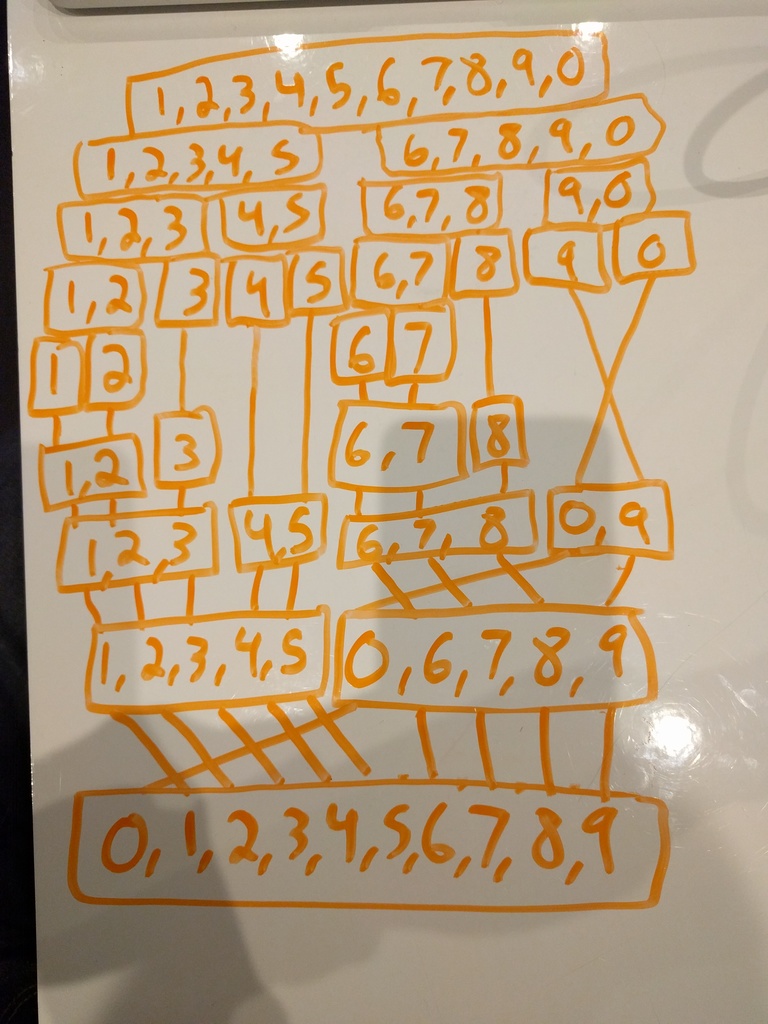 1,2,3,4,5,6,7,8,9,0
1,2,3,4,5 6,7,8,9,0
1,2,3 4,5 6,7,8 9,0
1,2 3 4 5 6,7 8 9 0
1 2 6 7
1,2 3 6,7 8
1,2,3 4,5 6,7,8 0,9
1,2,3,4,5 0,6,7,8,9
0,1,2,3,4,5,6,7,8,9